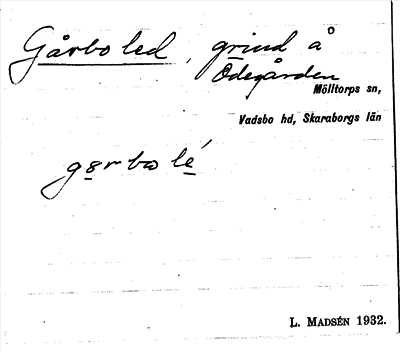 Gårbo led, grind å
Ödegården
Mölltorps sn,
Vadsbo hd, Skaraborgs län
gårbo lé
L. MADSÉN 1932.